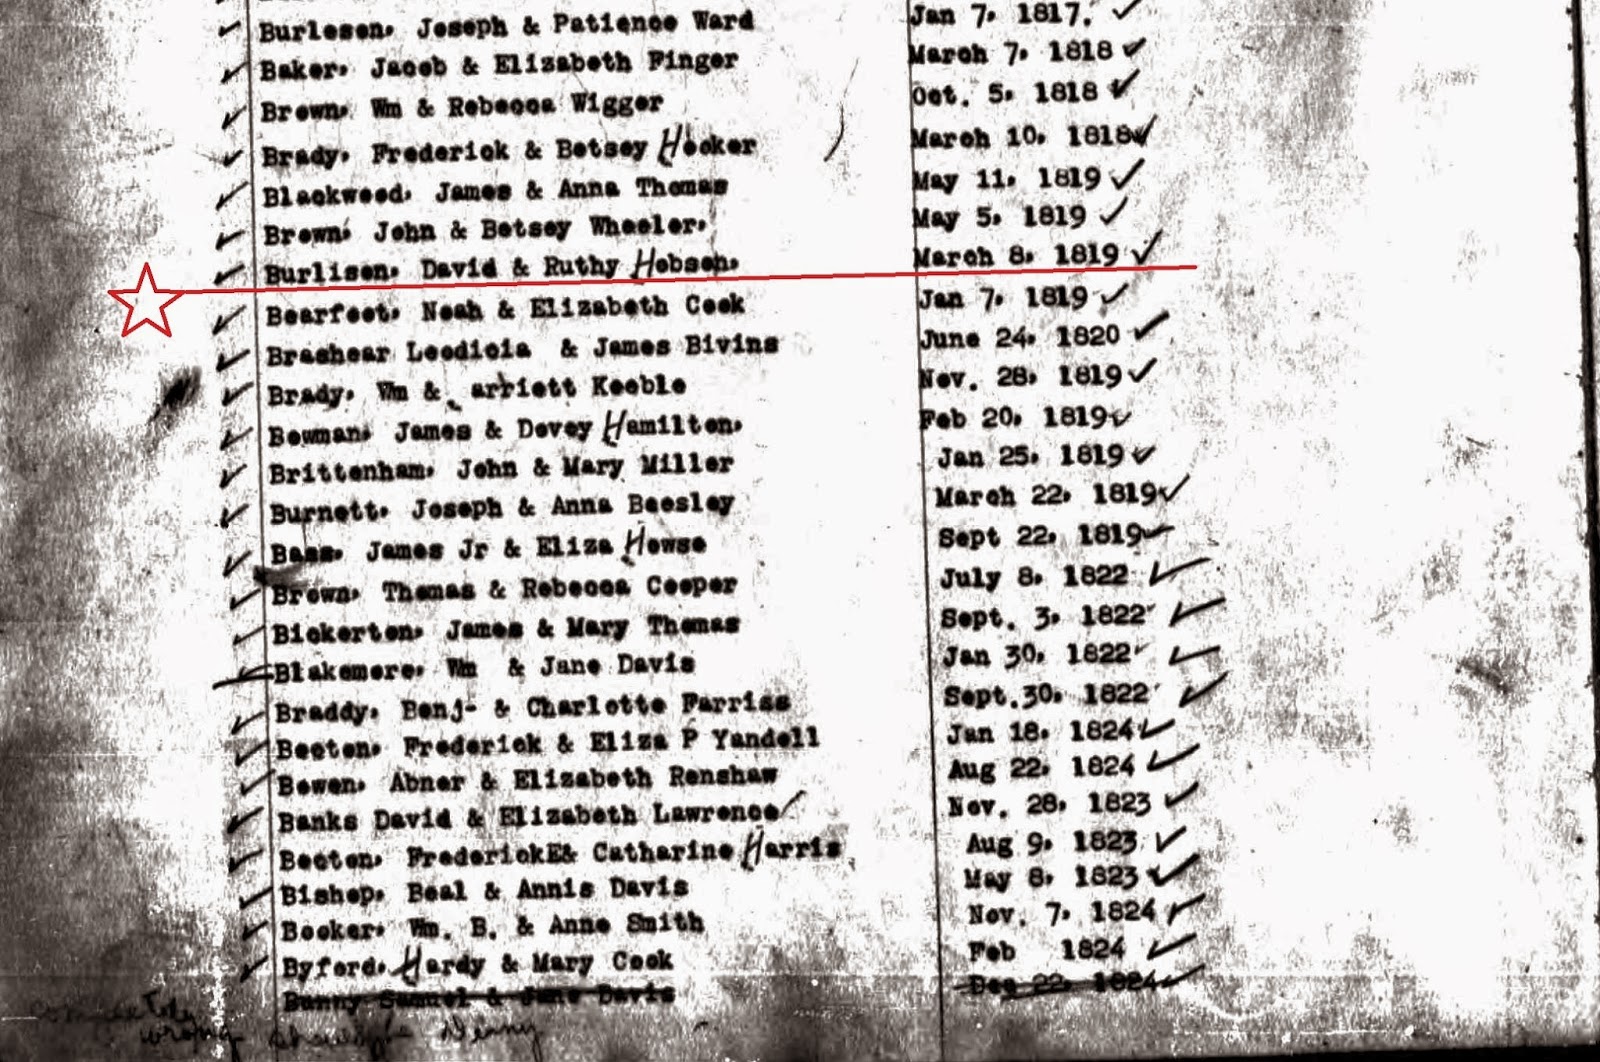 Burleson, Joseph & Patience Ward Jan 7, 1817.
Baker, Jacob & Elizabeth Finger March 7, 1818
Brown, Wm & Rebecca Wigger Oct. 5, 1818
Brady, Frederick & Betsey Hooker March 10, 1818
Blackwood, James & Anna Thomas May 11, 1819
Brown, John & Betsey Wheeler, May 5, 1819
Burlison, David & Ruthy Hobson, March 8, 1819
Bearfoot, Noah & Elizabeth Cook Jan 7, 1819
Brashear Leodicia & James Bivins June 24, 1820
Brady, Wm & arriett Keeble Nov. 28, 1819
Bowman, James & Dovey Hamilton, Feb 20, 1819
Brittenham, John & Mary Miller Jan 25, 1819
Burnett, Joseph & Anna Beesley March 22, 1819
Bass, James Jr & Eliza Howse Sept 22, 1819
Brown, Thomas & Rebecca Cooper July 8, 1822
Bickerton, James & Mary Thomas Sept. 3, 1822
Blakemore, Wm & Jane Davis Jan 30, 1822
Braddy, Benj- & Charlotte Farriss Sept.30, 1822
Beeton, Frederick & Eliza P Yandell Jan 18, 1824
Bowen, Abner & Elizabeth Renshaw Aug 22, 1824
Banks David & Elizabeth Lawrence Nov. 28, 1823
Beeton, FrederickE& Catharine Harris Aug 9, 1823
Bishop, Beal & Annis Davis May 8, 1823
Booker, Wm. B. & Anne Smith Nov. 7, 1824
Byford, Hardy & Mary Cook Feb 1824
Bunny Samuel & Jane Davis Dec 22, 1824
wrong should be Denny